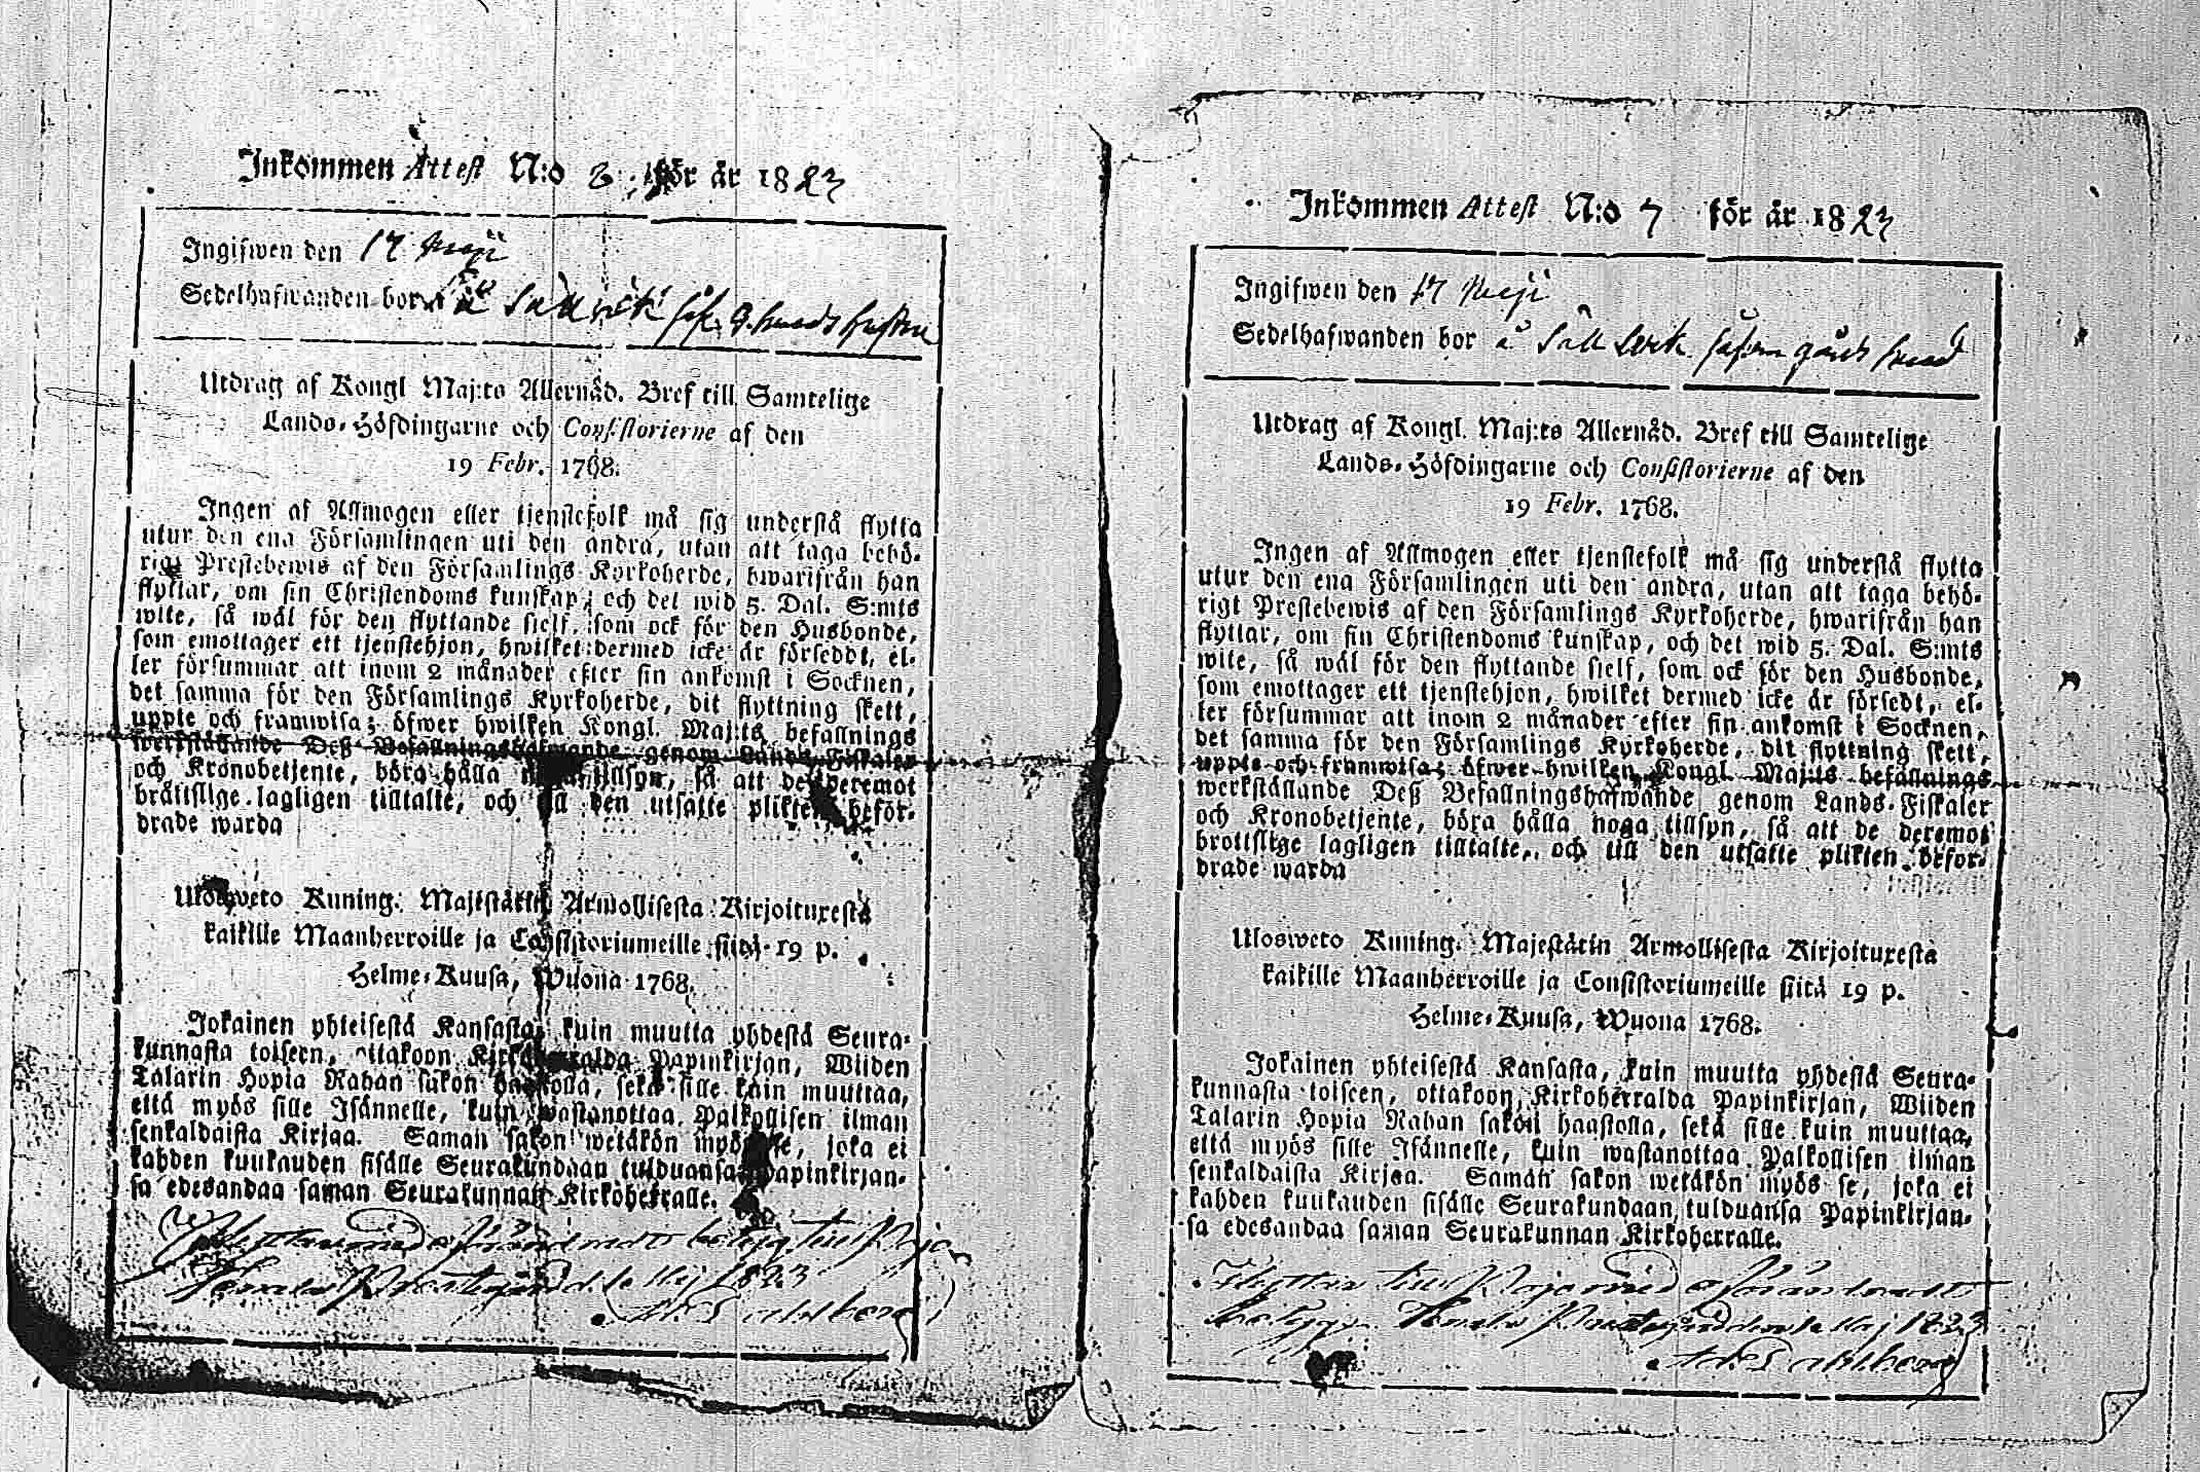 Inkommen Attest N:o 8 för år 1823
Ingifwen den 17 Maji
Sedelhafwanden bor å
Utdrag af Kongl Maj:ts Allernåd. Bref till Samtelige
Lands-Höfdingarne och Consistorierne af den
19 Febr. 1768.
Ingen af Allmogen eller tjenstefolk må sig understå flytta
utur den ena Församlingen uti den andra, utan att taga behö-
rigt Prestebewis af den Församlings Kyrkoherde, hwarifrån han
flyttar, om sin Christendoms kunskap, och det wid 5. Dal. S:mts
wite, så wäl för den flyttande sielf, som ock för den Husbonde,
som emottager ett tjenstehjon, hwilket dermed icke är förseddt, el-
ler försummar att inom 2 månader efter sin ankomst i Socknen,
det samma för den Församlings Kyrkoherde, dit flyttning skett,
uppte och framwisa; öfwer hwilken Kongl. Maj:ts befallnings
werkställande Deß Befallningshafwande genom Lands-Fiskaler
och Kronobetjente, böra hålla tillsyn, så att de deremot
bråttslige lagligen tilltalte, och till den utsatte plikten beför-
drade warda
Ulosweto Kuning. Majestätin Armollisesta Kirjoituxesta
kaikille Maanherroille ja Consistoriumeille siitä 19 p.
Helme-Kuusa, Wuona 1768.
Jokainen yhteisestä Kansasta, kuin muutta yhdestä Seura-
kunnasta toiseen, ottakoon Kirkoherralda Papinkirjan, Wiiden
Talarin Hopia Rahan sakon haastolla, sekä sille kuin muuttaa,
että myös sille Isännelle, kuin wastanottaa Palkollisen ilman
senkaldaista Kirjaa. Saman sakon wetäkön myös se, joka ei
kahden kuukauden sisälle Seurakundaan tulduansa Papinkirjan-
sa edesandaa saman Seurakunnan Kirkoherralle.
Maj 1823
Inkommen Attest N:o 7 för år 1823
Ingifwen den 17 Maji
Sedelhafwanden bor å
Utdrag af Kongl. Maj:ts Allernåd. Bref till Samtelige
Lands-Höfdingarne och Consistorierne af den
19 Febr. 1768.
Ingen af Allmogen eller tjenstefolk må sig understå flytta
utur den ena Församlingen uti den andra, utan att taga behö-
rigt Prestebewis af den Församlings Kyrkoherde, hwarifrån han
flyttar, om sin Christendoms kunskap, och det wid 5. Dal. S:mts
wite, så wäl för den flyttande sielf, som ock för den Husbonde,
som emottager ett tjenstehjon, hwilket dermed icke är försedt, el-
ler försummar att inom 2 månader efter sin ankomst i Socknen,
det samma för den Församlings Kyrkoherde, dit flyttning skett,
uppte och framwisa; öfwer hwilken Kongl. Maj:ts befallnings
werkställande Deß Befallningshafwande genom Lands-Fiskaler
och Kronobetjente, böra hålla noga tillsyn, så att de deremot
brottslige lagligen tilltalte, och till den utsatte plikten befor-
drade warda
Ulosweto Kuning. Majestätin Armollisesta Kirjoituxesta
kaikille Maanherroille ja Consistoriumeille siitä 19 p.
Helme-Kuusa, Wuona 1768.
Jokainen yhteisestä Kansasta, kuin muutta yhdestä Seura-
kunnasta toiseen, ottakoon Kirkoherralda Papinkirjan, Wiiden
Talarin Hopia Rahan sakon haastolla, sekä sille kuin muuttaa,
että myös sille Isännelle, kuin wastanottaa Palkollisen ilman
senkaldaista Kirjaa. Saman sakon wetäkön myös se, joka ei
kahden kuukauden sisälle Seurakundaan tulduansa Papinkirjan-
sa edesandaa saman Seurakunnan Kirkoherralle.
Flyttar till med
Maj 1823